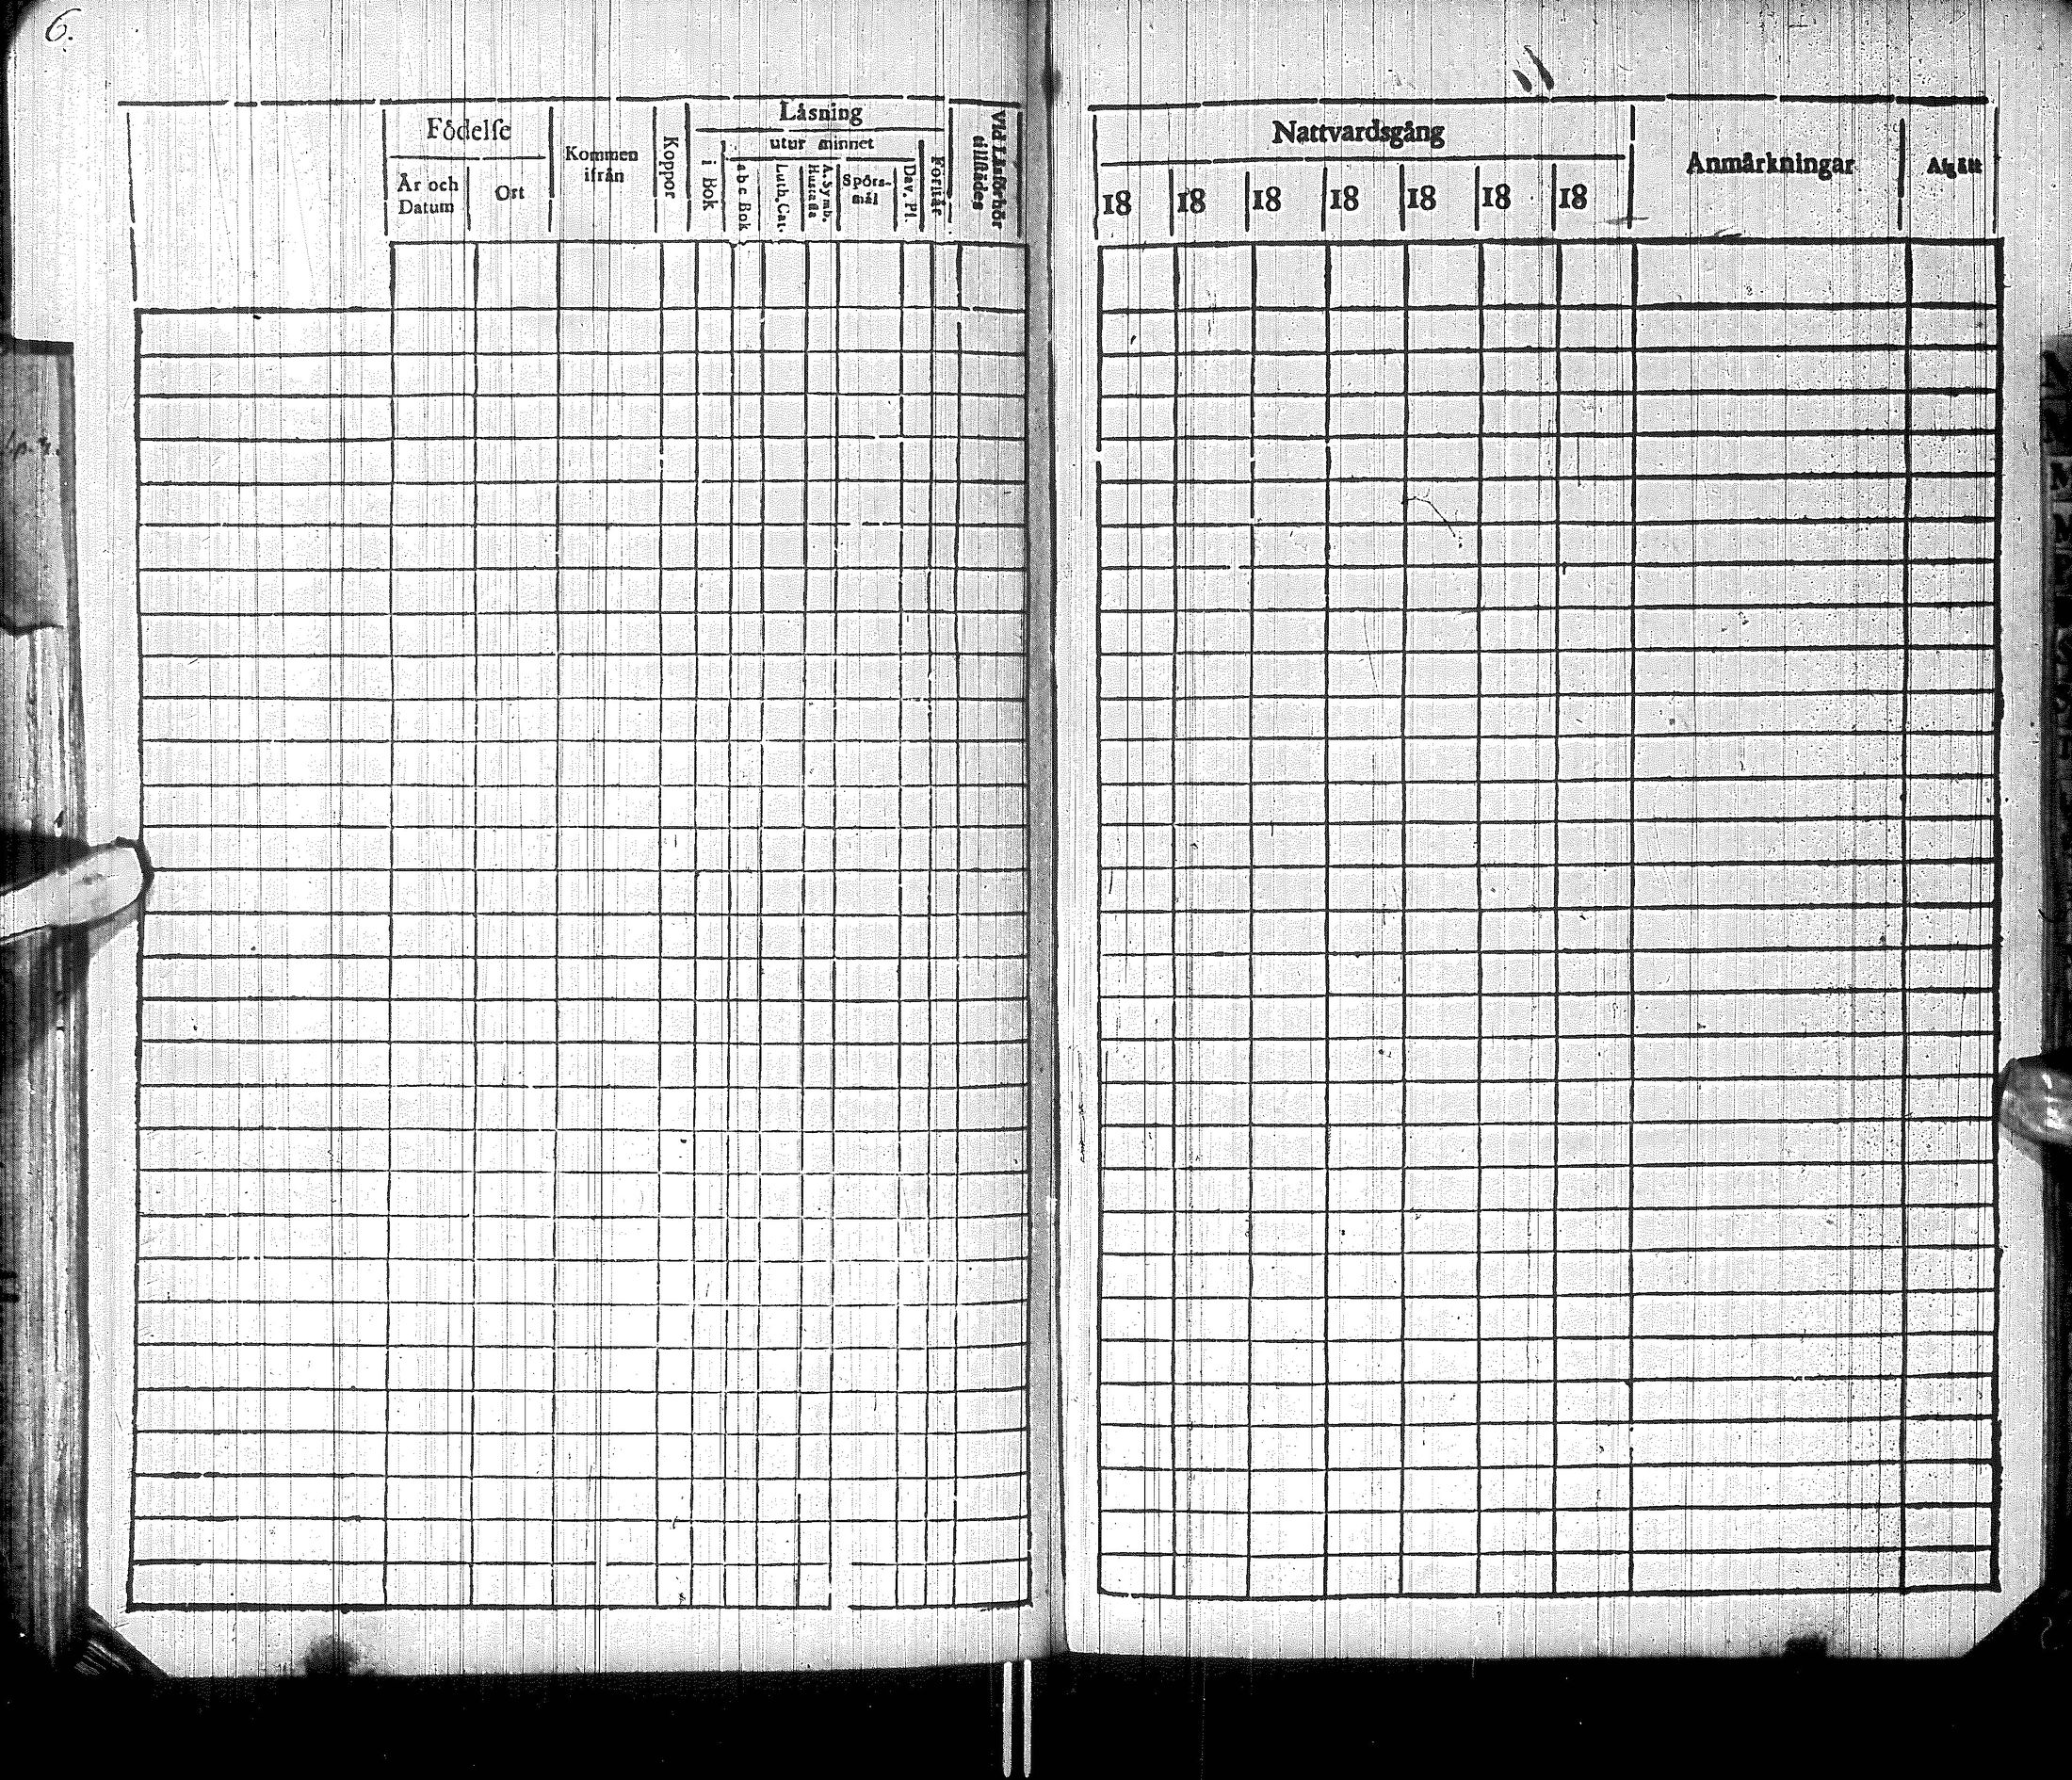 6.
Födelſe
År och Datum
Ort
Kommen ifrån
Koppor
Låsning
i Bok
utur minnet
a b c Bok
Luth. Cat.
A. Symb. Hustafla
Spörs-mål
Dav. Pſ.
Förſtår
Vid Låsförhör tillſtädes
Nattvardsgång
18 18 18 18 18 18 18
Anmärkningar
Afgått